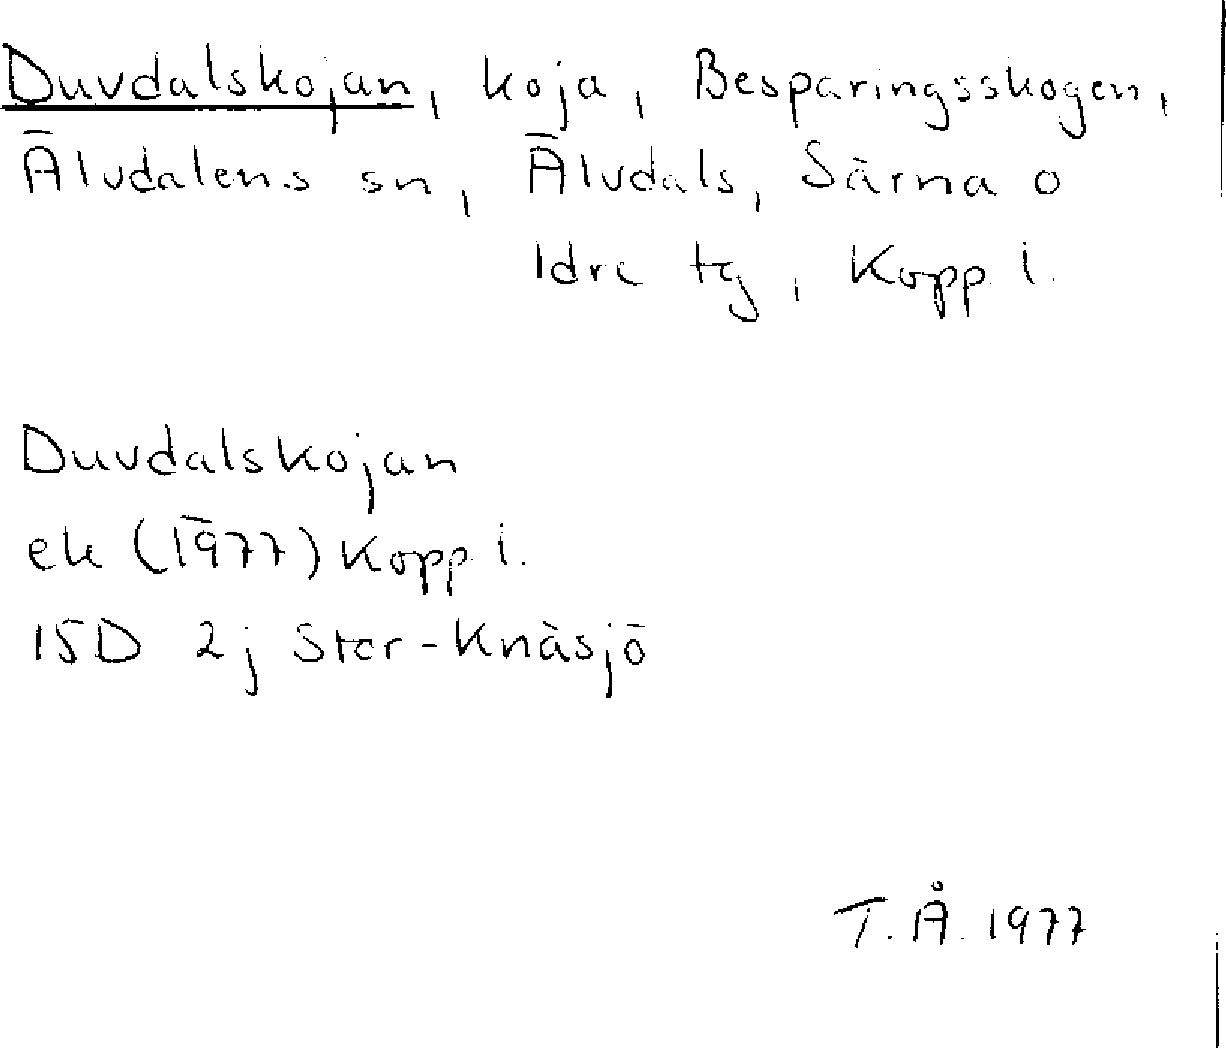 Duvdalskojan, koja, Besparingsskogen,
Älvdalens sn, Älvdals, Särna o
Idre tg, Kopp l.
Duvdalskojan
ek (1977) Kopp l.
15D 2j Stor-Knäsjö
T.Å. 1977